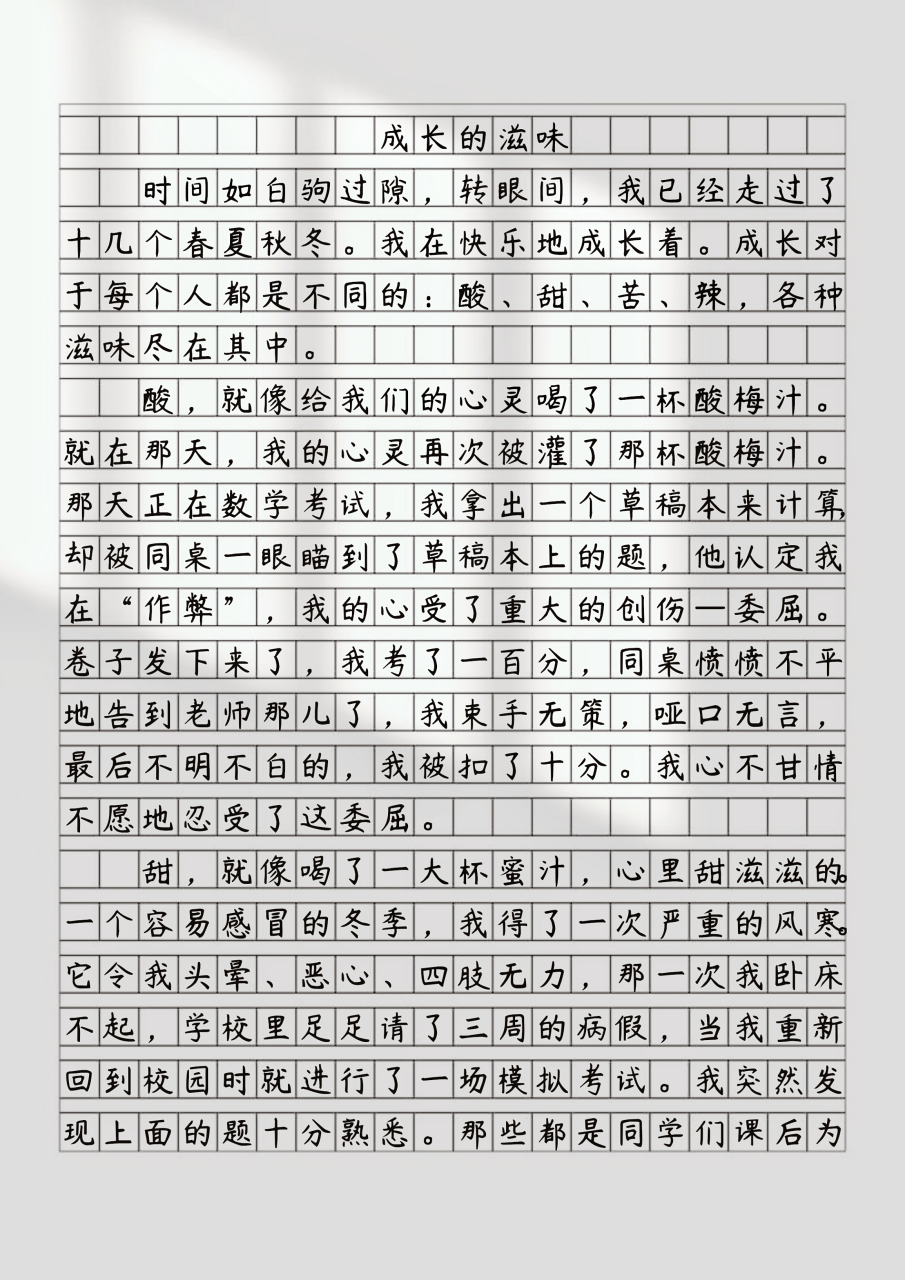 成长的滋味
时间如白驹过隙，转眼间，我已经走过了
十几个春夏秋冬。我在快乐地成长着。成长对
于每个人都是不同的：酸、甜、苦、辣，各种
滋味尽在其中。
酸，就像给我们的心灵喝了一杯酸梅汁。
就在那天，我的心灵再次被灌了那杯酸梅汁。
那天正在数学考试，我拿出一个草稿本来计算，
却被同桌一眼瞄到了草稿本上的题，他认定我
在“作弊”，我的心受了重大的创伤—委屈。
卷子发下来了，我考了一百分，同桌愤愤不平
地告到老师那儿了，我束手无策，哑口无言，
最后不明不白的，我被扣了十分。我心不甘情
不愿地忍受了这委屈。
甜，就像喝了一大杯蜜汁，心里甜滋滋的。
一个容易感冒的冬季，我得了一次严重的风寒。
它令我头晕、恶心、四肢无力，那一次我卧床
不起，学校里足足请了三周的病假，当我重新
回到校园时就进行了一场模拟考试。我突然发
现上面的题十分熟悉。那些都是同学们课后为